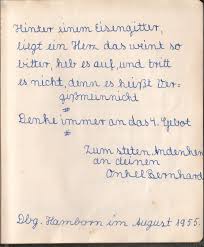 Hinter einem Eisengitter,
liegt ein Herz das weint so
bitter, heb es auf, und tritt
es nicht, denn es heißt Ver-
gißmeinnicht
*
Denke immer an das 4. Gebot
*
Zum steten Andenken
an deinen
Onkel Bernhard
Dbg. Hamborn im August 1955.